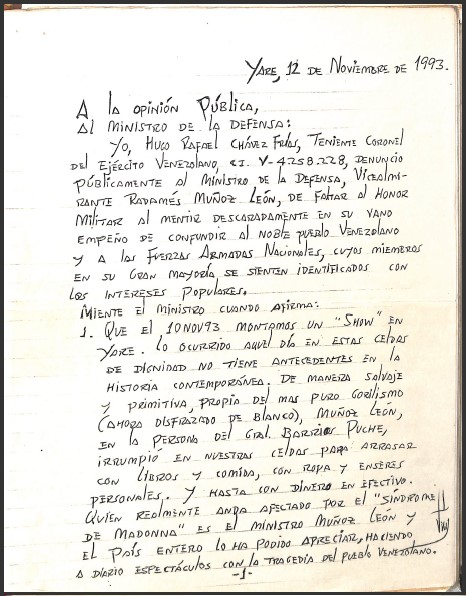 YARE, 12 DE NOVIEMBRE DE 1993.
A la OPINIÓN PÚBLICA,
Al MINISTRO DE la DEFENSA:
YO, HUGO RAFAEL CHÁVEZ FRÍAS, TENIENTE CORONEL
DEL EJÉRCITO VENEZOLANO, C.I. V-4258.228, DENUNCIO
PÚBLICAMENTE Al MINISTRO DE la DEFENSA, VICEALMI-
RANTE RADAMÉS MUÑOZ LEÓN, DE FALTAR Al HONOR
MILITAR Al MENTIR DESCARADAMENTE EN SU VANO
EMPEÑO DE CONFUNDIR Al NOBLE PUEBLO VENEZOLANO
Y A LAS FUERZAS ARMADAS NACIONALES, CUYOS MIEMBROS
EN SU GRAN MAYORÍA SE SIENTEN IDENTIFICADOS CON
LOS INTERESES POPULARES.
MIENTE EL MINISTRO CUANDO AFIRMA:
1. QUE EL 10NOV93 MONTAMOS UN "SHOW" EN
YARE. LO OCURRIDO AQUEL DÍA EN ESTAS CELDAS
DE DIGNIDAD NO TIENE ANTECEDENTES EN LA
HISTORIA CONTEMPORÁNEA. DE MANERA SALVAJE
Y PRIMITIVA, PROPIO DEL MAS PURO GORILISMO
(AHORA DISFRAZADO DE BLANCO), MUÑOZ LEÓN,
EN LA PERSONA DEL GRAL. BARRIOS PUCHE,
IRRUMPIÓ EN NUESTRAS CELDAS PARA ARRASAR
CON LIBROS Y COMIDA, CON ROPA Y ENSERES
PERSONALES. Y HASTA CON DINERO EN EFECTIVO.
QUIEN REALMENTE ANDA AFECTADO POR EL "SÍNDROME
DE MADONNA" ES EL MINISTRO MUÑOZ LEÓN Y
EL PAÍS ENTERO LO HA PODIDO APRECIAR, HACIENDO
A DIARIO ESPECTÁCULOS CON LA TRAGEDIA DEL PUEBLO VENEZOLANO.
-1-